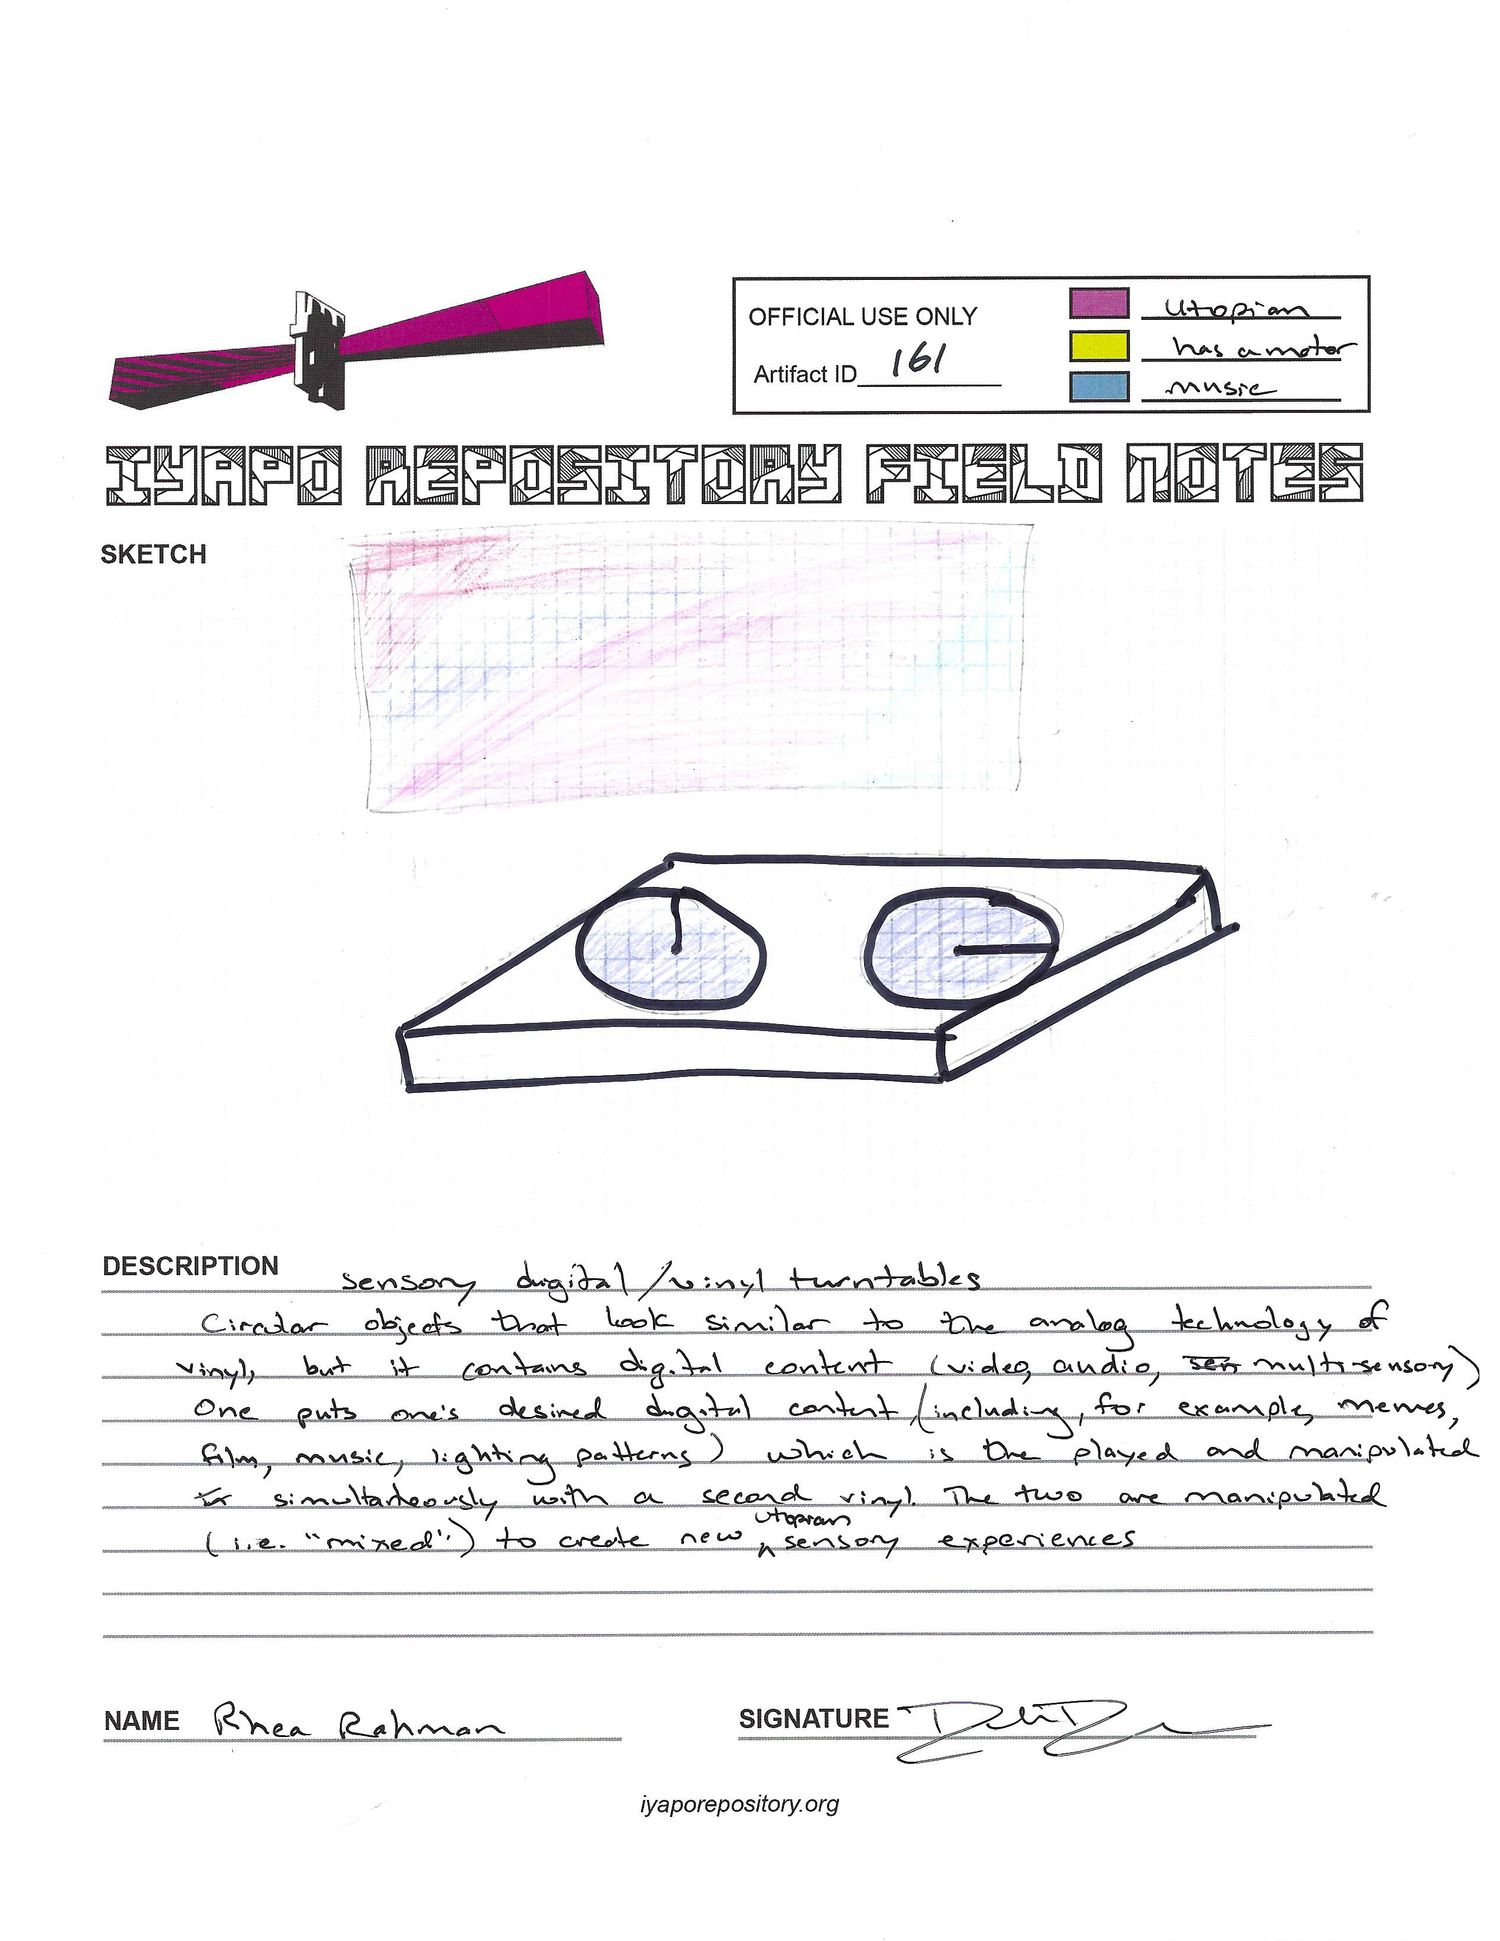 OFFICIAL USE ONLY
Artifact ID 161
Utopian
has a motor
music
IYAPO REPOSITORY FIELD NOTES
SKETCH
DESCRIPTION sensory digital/vinyl turntables
Circular objects that look similar to the analog technology of
vinyl, but it contains digital content (video, audio, sen multi-sensory)
One puts one's desired digital content (including, for example, memes,
film, music, lighting patterns) which is the played and manipulated
simultaneously with a second vinyl. The two are manipulated
(i.e. "mixed") to create new utopian sensory experiences
NAME Rhea Rahman
SIGNATURE
iyaporepository.org